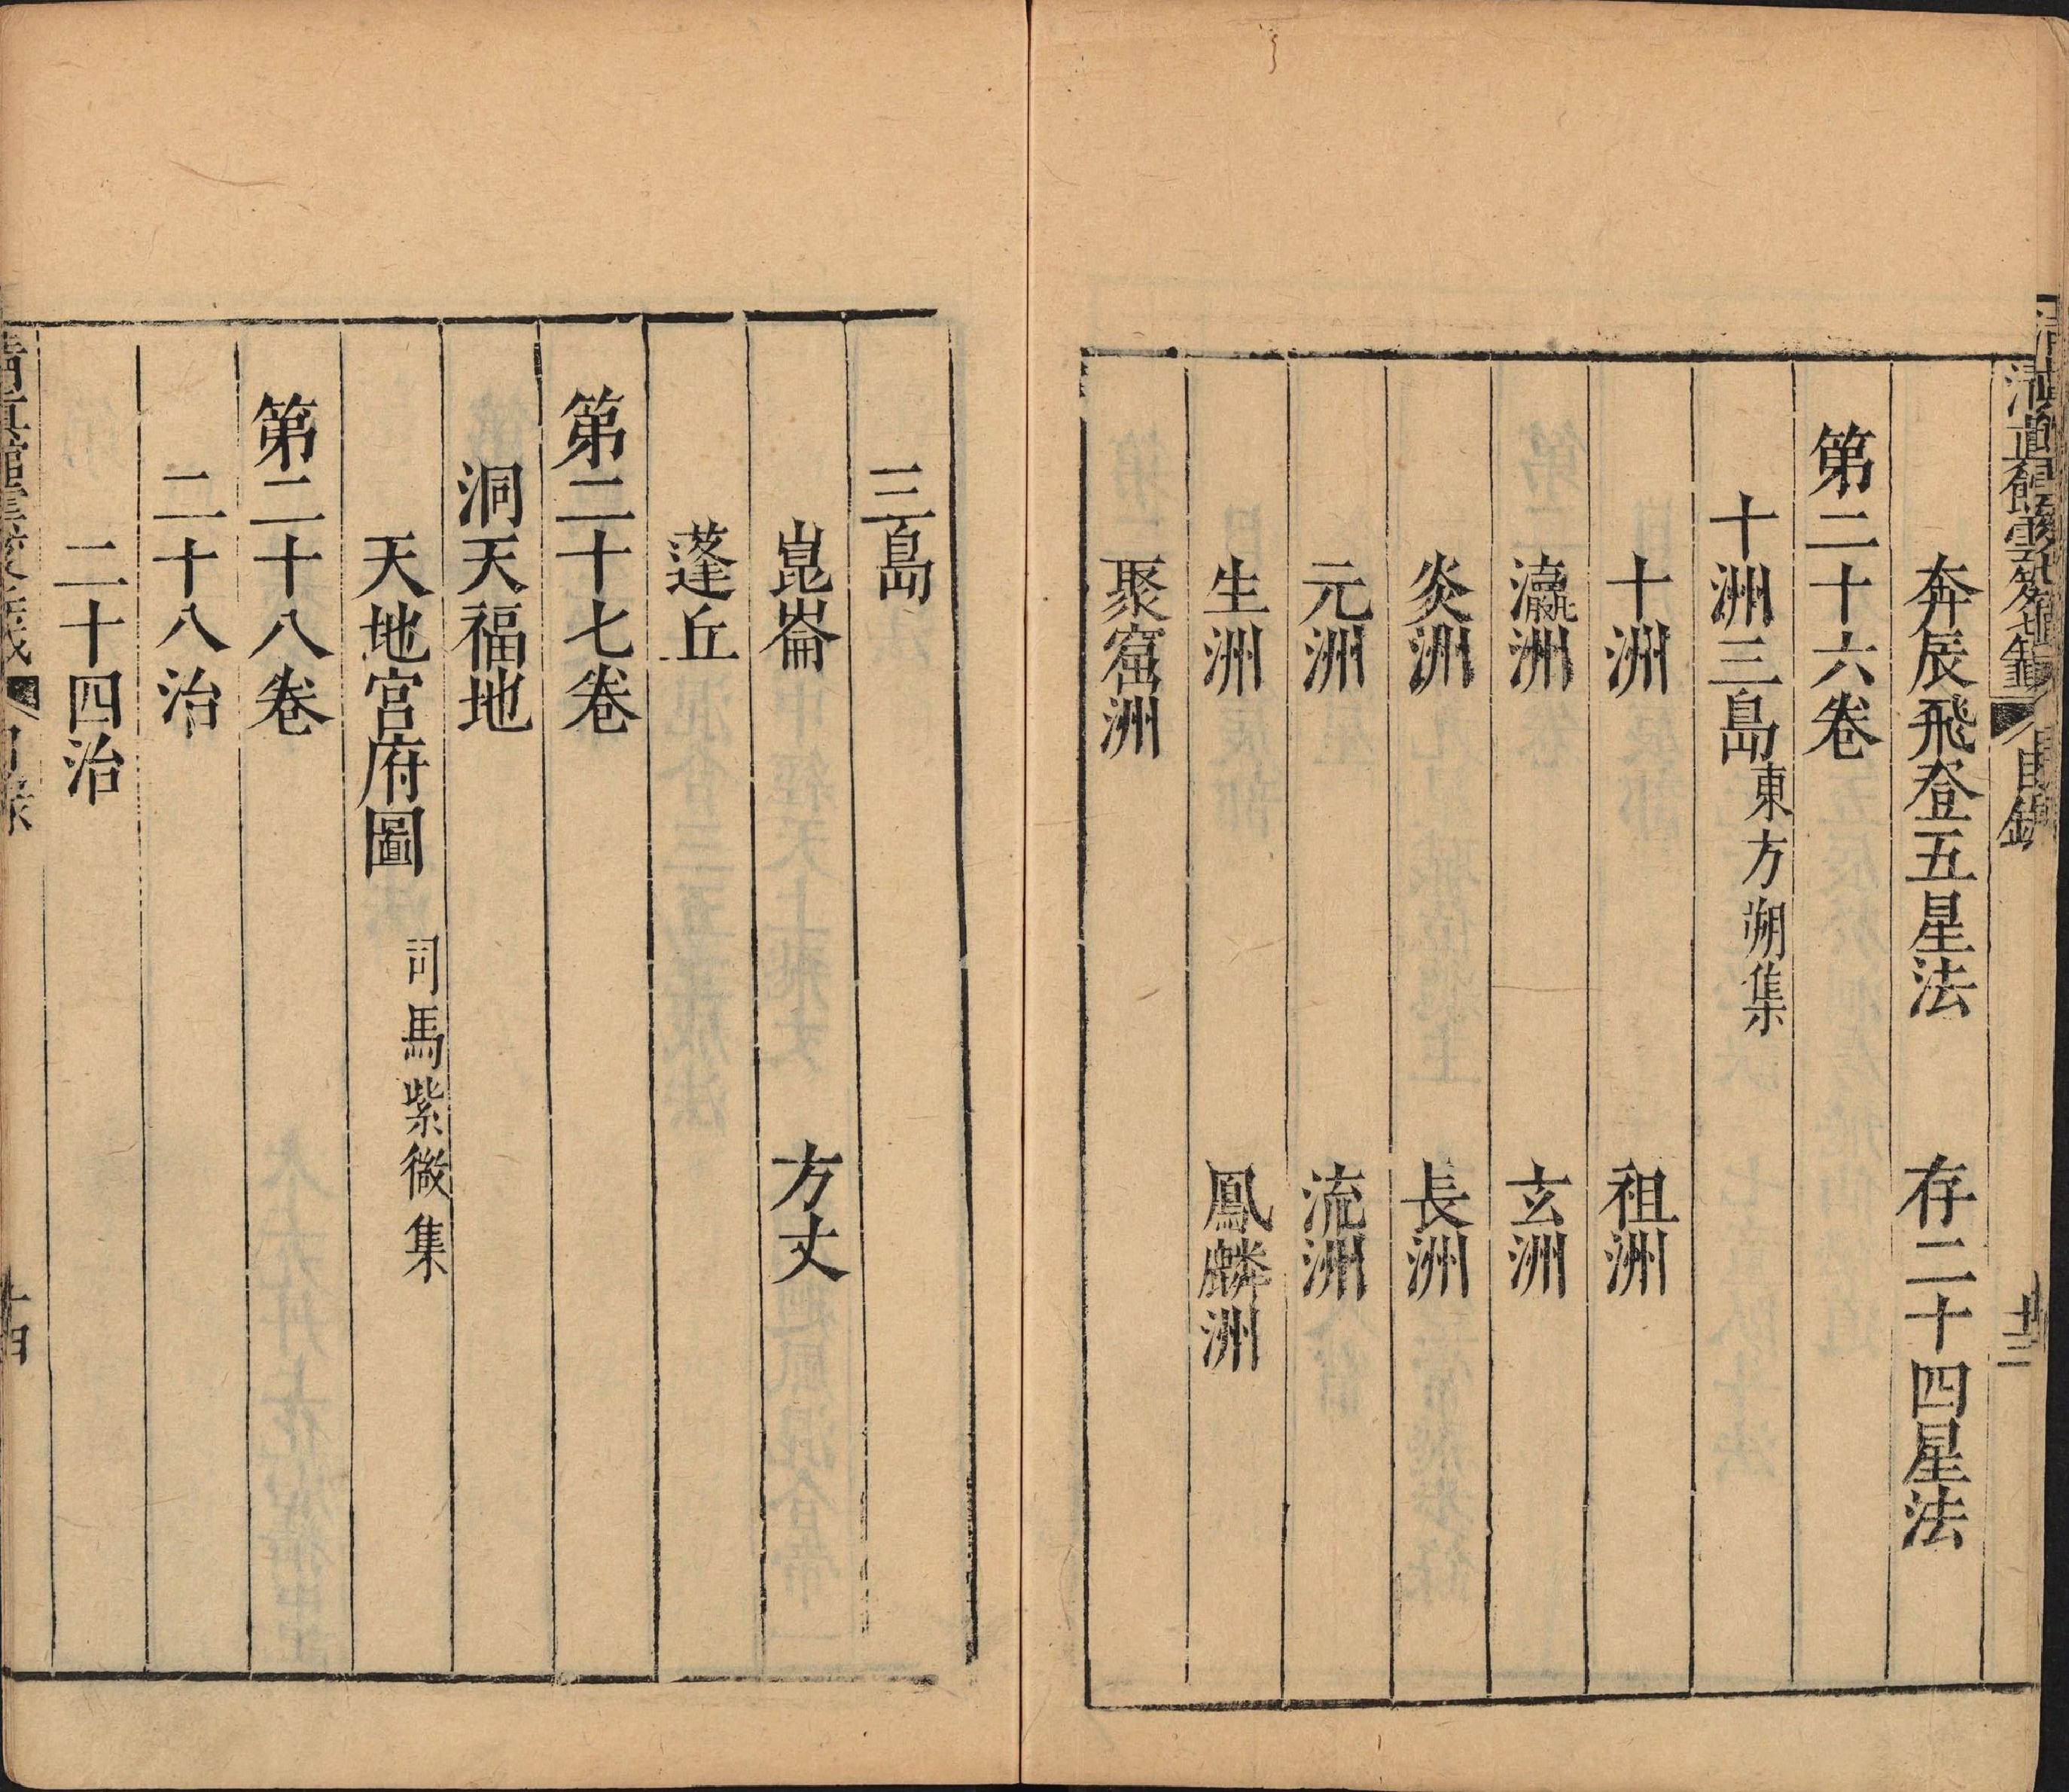 清真館雲笈七籤 目録 十三
奔辰飛登五星法 存二十四星法
第二十六卷
十洲三島 東方朔集
十洲 祖洲
瀛洲 玄洲
炎洲 長洲
元洲 流洲
生洲 鳳麟洲
聚窟洲
三島
崑崙 方丈
蓬丘
第二十七卷
洞天福地
天地宮府圖 司馬紫微集
第二十八卷
二十八治
二十四治
目録 十四